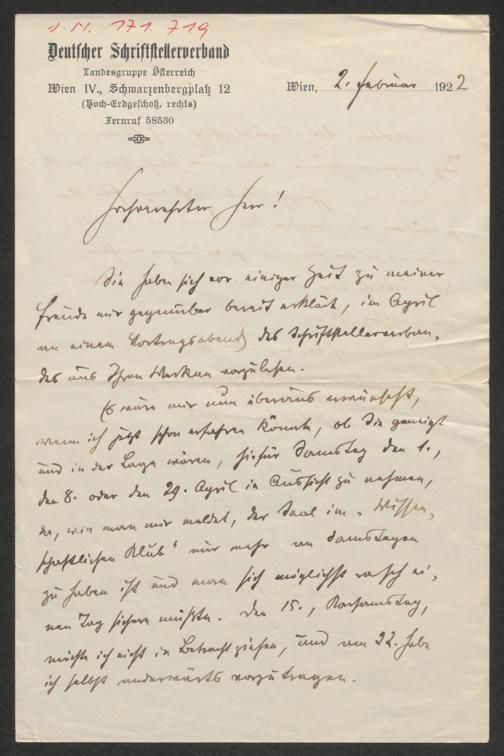 I.N. 171.719
Deutscher Schriftstellerverband
Landesgruppe Österreich
Wien IV., Schwarzenbergplatz 12
(Hoch-Erdgeschoß, rechts)
Fernruf 58530
Wien, 2. Februar 1922
Hochverehrter Herr!
Sie haben sich vor einiger Zeit zu meiner
Freude mir gegenüber bereit erklärt, im April
an einem Vortragsabend des Schriftstellerverban-
des aus Ihren Werken vorzulesen.
Es wäre mir nun überaus erwünscht,
wenn ich jetzt schon erfahren könnte, ob Sie geneigt
und in der Lage wären, hiefür Samstag den 1.,
den 8. oder den 29. April in Aussicht zu nehmen,
da, wie man mir meldet, der Saal im „Wissen-
schaftlichen Klub" nur mehr an Samstagen
zu haben ist und man sich möglichst rasch ei-
nen Tag sichern müßte. Den 15., Karsamstag,
möchte ich nicht in Betracht ziehen, und am 22. habe
ich selbst anderwärts vorzutragen.